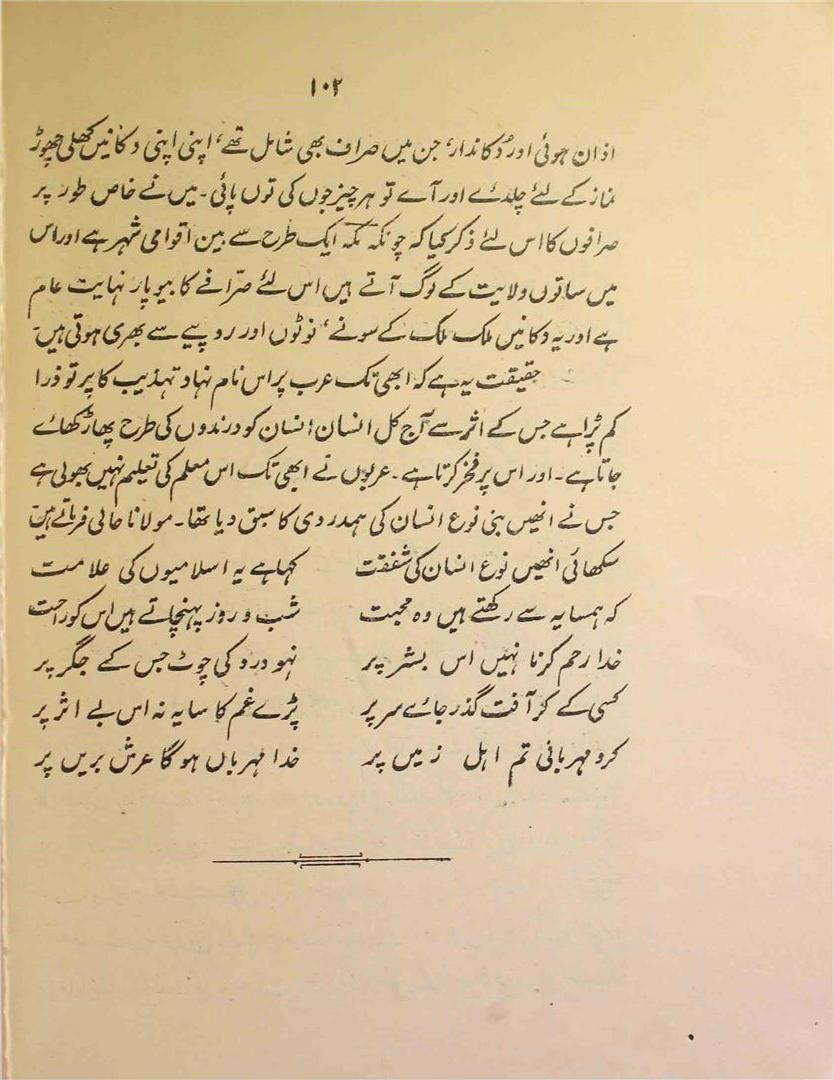 ۱۰۲
اذان ہوئی اور دُکاندار، جن میں صراف بھی شامل تھے، اپنی اپنی دکانیں کھلی چھوڑ
نماز کے لئے چلدئے اور آے تو ہر چیز جوں کی توں پائی۔ میں نے خاص طور پر
صرافوں کا اس لئے ذکر کیا کہ چونکہ مکّہ ایک طرح سے بین اقوامی شہر ہے اور اس
میں ساتوں ولایت کے لوگ آتے ہیں اس لئے صرّافے کا بیوپار نہایت عام
ہے اور یہ دکانیں ملک ملک کے سونے، نوٹوں اور روپیے سے بھری ہوتی ہیں۔
حقیقت یہ ہے کہ ابھی تک عرب پر اس نام نہاد تہذیب کا پرتو ذرا
کم پڑا ہے جس کے اثر سے آج کل انسان انسان کو درندوں کی طرح پھاڑ کھائے
جاتا ہے۔ اور اس پر فخر کرتا ہے۔ عربوں نے ابھی تک اس معلم کی تعلیم نہیں بھولی ہے
جس نے انھیں بنی نوع انسان کی ہمدردی کا سبق دیا تھا۔ مولانا حالی فرماتے ہیں
سکھائی انھیں نوع انسان کی شفقت کہا ہے یہ اسلامیوں کی علامت
کہ ہمسایہ سے رکھتے ہیں وہ محبت شب و روز پہنچاتے ہیں اس کو راحت
خدا رحم کرتا نہیں اس بشر پر نہو درد کی چوٹ جس کے جگر پر
کسی کے گر آفت گذر جائے سر پر پڑے غم کا سایہ نہ اس بے اثر پر
کرو مہربانی تم اہل زمیں پر خدا مہرباں ہوگا عرش بریں پر